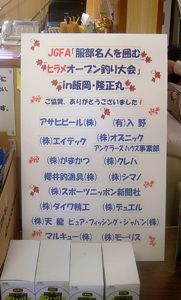 JGFA「服部名人を囲む
ヒラメオープン釣り大会」
in飯岡・隆正丸
ご協賛、ありがとうございました!
アサヒビール(株) (有)入野
(株)エイテック (株)オスニック
アングラーズハウス事業部
(株)がまかつ (株)クレハ
櫻井釣漁具(株) (株)シマノ
(株)スポーツニッポン新聞社
(株)ダイワ精工 (株)デュエル
(株)天龍 ピュア・フィッシング・ジャパン(株)
マルキュー(株) (株)モーリス